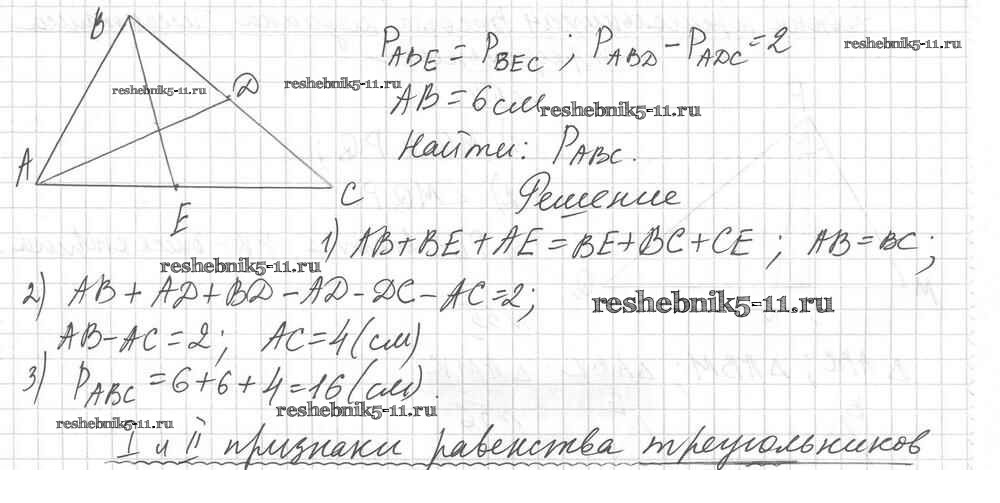 B
D
A
C
E
P_ABE = P_BEC ; P_ABD − P_ADC = 2
AB = 6 см
Найти: P_ABC.
Решение
1) AB + BE + AE = BE + BC + CE ; AB = BC ;
2) AB + AD + BD − AD − DC − AC = 2;
AB − AC = 2 ; AC = 4 (см)
3) P_ABC = 6 + 6 + 4 = 16 (см).
I и II признаки равенства треугольников
reshebnik5-11.ru
reshebnik5-11.ru
reshebnik5-11.ru
reshebnik5-11.ru
reshebnik5-11.ru
reshebnik5-11.ru
reshebnik5-11.ru
reshebnik5-11.ru